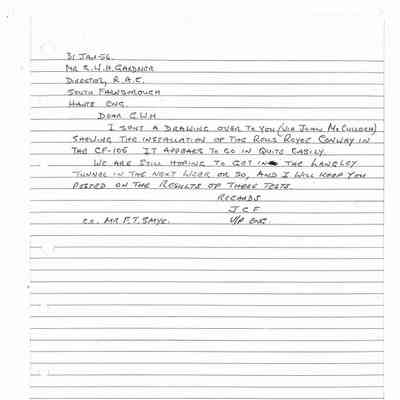 31 JAN-56.
MR E.W.H. GARDNER
DIRECTOR, R.A.E.
SOUTH FARNBOROUGH
HANTS ENG.
DEAR E.W.H
I SENT A DRAWING OVER TO YOU (VIA JOHN McCULLOCH)
SHOWING THE INSTALLATION OF THE ROLLS ROYCE CONWAY IN
THE CF-105 IT APPEARS TO GO IN QUITE EASILY.
WE ARE STILL HOPING TO GET IN THE LANGLEY
TUNNEL IN THE NEXT WEEK OR SO, AND I WILL KEEP YOU
POSTED ON THE RESULTS OF THESE TESTS.
REGARDS
J.C.F
c.c. MR F.T. SMYE. V/P ENG.